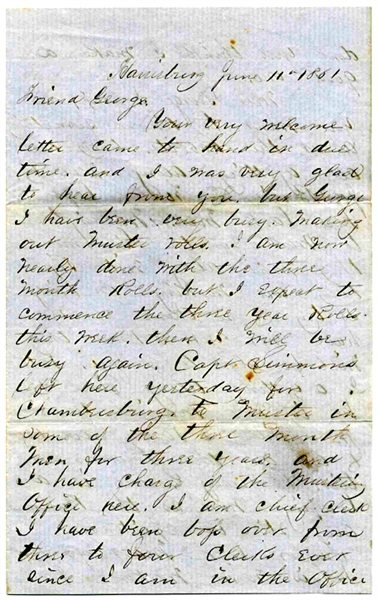 Harrisburg June 11th 1861
Friend George
Your very welcome
letter came to hand in due
time. and I was very glad
to hear from you, but George
I have been very busy. Making
out Muster roles. I am now
nearly done with the three
Month Rolls. but I expect to
commence the three year Rolls
this week. then I will be
busy again. Capt Simmons
left here yesterday for
Chambersburg to Muster in
som of the three Month
Men for three years, and
I have charge of the Mustering
Office here. I am chief clerk
I have been bos over from
three to four Clerks ever
since I am in the Office